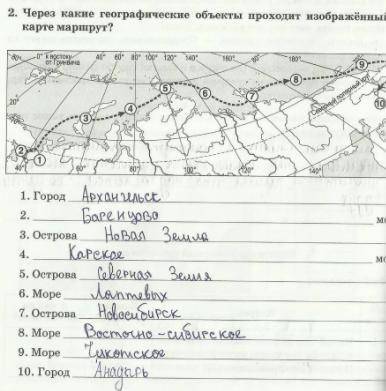 2. Через какие географические объекты проходит изображённый
карте маршрут?
0° к востоку
от Гринвича
40° 60° 80° 100° 120° 140° 160° 180° 160°
20°
Северный полярный круг
40° 60° 80° 100° 120° 140°
1 2 3 4 5 6 7 8 9 10
1. Город Архангельск
2. Баренцово мо
3. Острова Новая Земла
4. Карское мо
5. Острова Северная Земля
6. Море Лаптевых
7. Острова Новосибирск
8. Море Восточно-сибирское
9. Море Чукотское
10. Город Анадырь